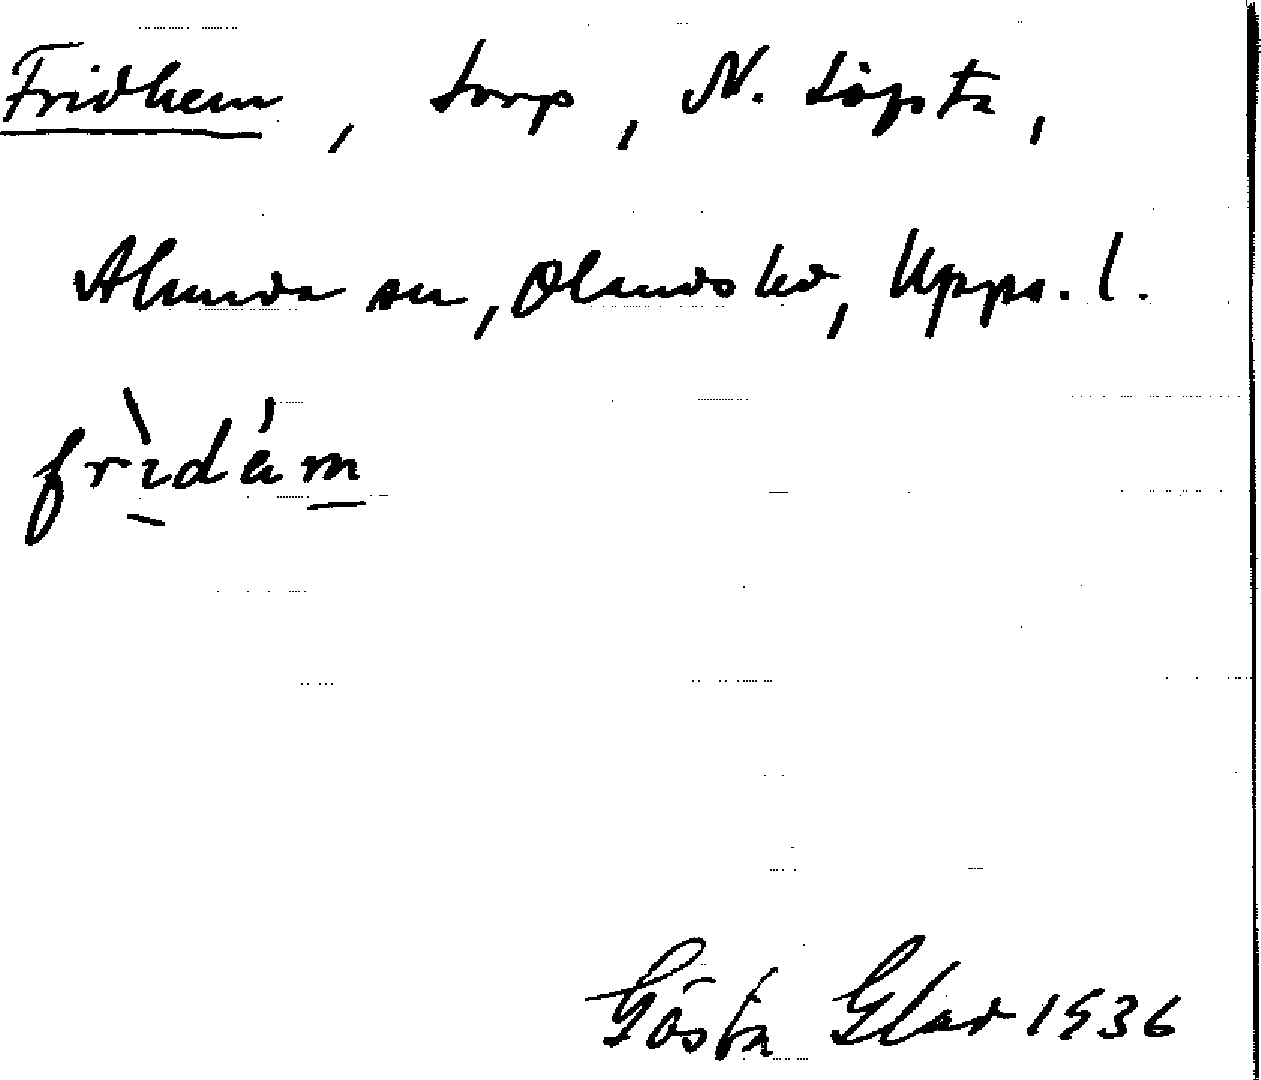 Fridhem, torp, N. Löpsta,
Alunda sn, Olands hd, Upps. l.
frìdám
Gösta Glad 1936